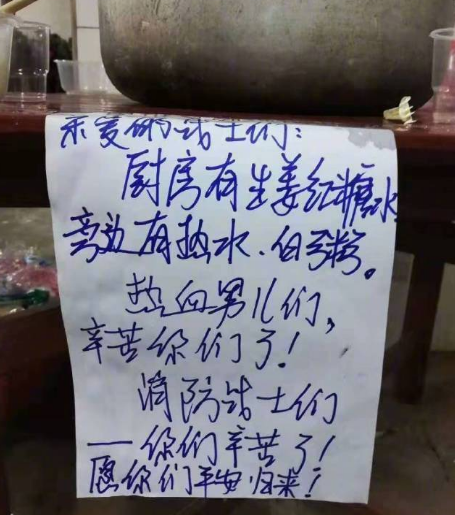 亲爱的战士们：
厨房有生姜红糖水
旁边有热水、白粥。
热血男儿们，
辛苦你们了！
消防战士们
——你们辛苦了！
愿你们平安归来！